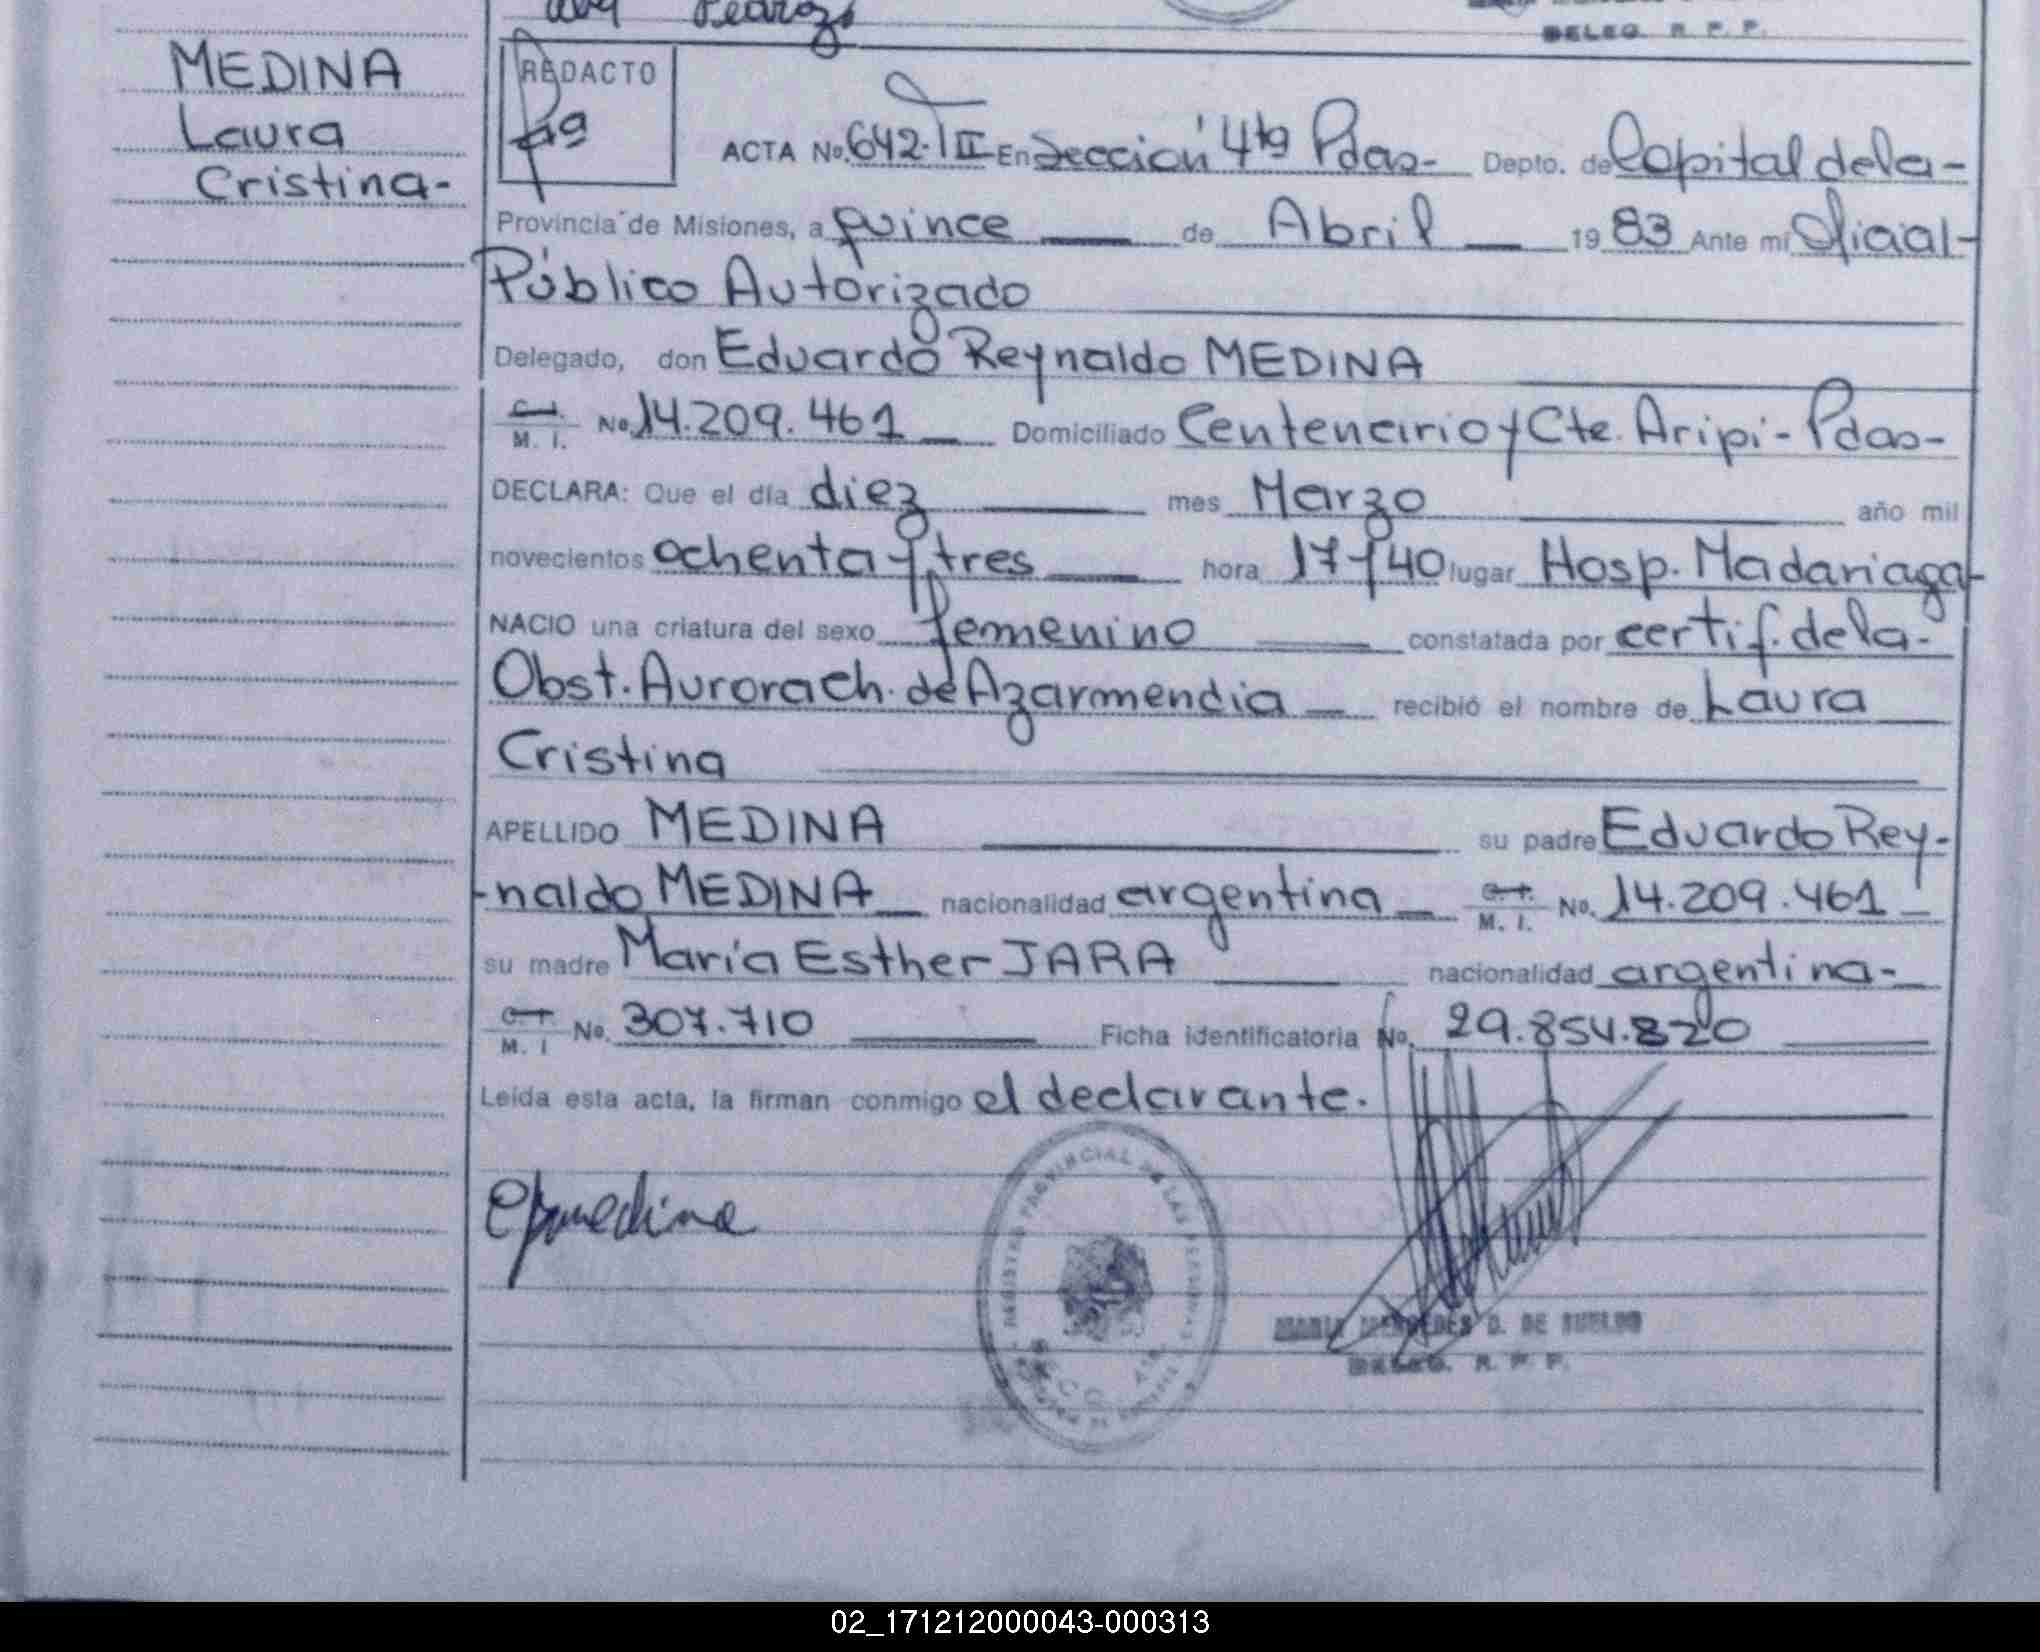 Pedrozo
DELEG. R. P. P.
MEDINA
Laura
Cristina-
REDACTO
ACTA No. 642.T II En Sección 4ta Pdas- Depto. de Capital dela-
Provincia de Misiones, a quince de Abril 1983 Ante mí Oficial-
Público Autorizado
Delegado, don Eduardo Reynaldo MEDINA
C. I.
M. I. No. 14.209.461 Domiciliado Centenario y Cte. Aripi- Pdas-
DECLARA: Que el día diez mes Marzo año mil
novecientos ochenta y tres hora 17 y 40 lugar Hosp. Madariaga-
NACIO una criatura del sexo femenino constatada por certif. dela-
Obst. Aurora ch. de Azarmendia recibió el nombre de Laura
Cristina
APELLIDO MEDINA su padre Eduardo Rey-
-naldo MEDINA nacionalidad argentina C. I. M. I. No. 14.209.461
su madre María Esther JARA nacionalidad argentina-
C. I.
M. I No. 307.710 Ficha identificatoria No. 29.854.820
Leída esta acta, la firman conmigo el declarante.
REGISTRO PROVINCIAL DE LAS PERSONAS
SECC. 4ta
MARIA MERCEDES D. DE SUELDO
DELEG. R. P. P.
02_171212000043-000313